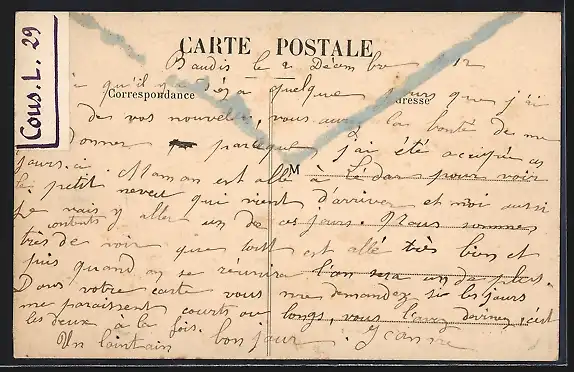 Cous. L. 29
CARTE POSTALE
Baudis le 2 Décembre 12
qu'il y a déjà quelque jours que j'ai
Correspondance
Adresse
de vos nouvelles, vous aurez la bonté de me
donner parceque j'ai été occupée ces
jours-ci. Maman est allé à Lédar pour voir
M
le petit neveu qui vient d'arriver et moi aussi
je vais y aller un de ces jours. Nous sommes
contents
très de voir que tout est allé très bien et
puis quand on se réunira l'on sera un de plus.
Dans votre carte vous me demandez si les jours
me paraissent courts ou longs, vous l'avez deviné, c'est
les deux à la fois.
Un lointain bonjour. Jeanne